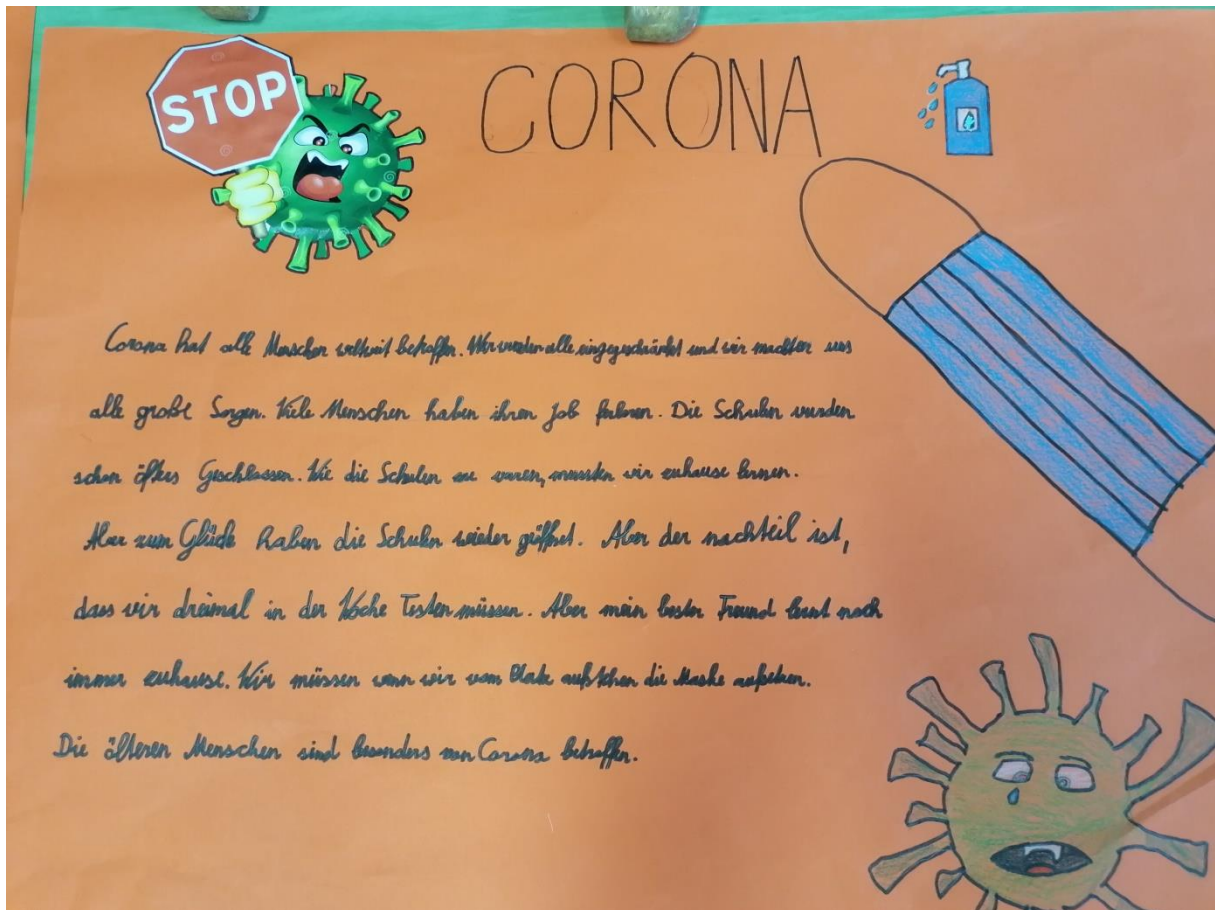 STOP
CORONA
Corona hat alle Menschen weltweit betroffen. Wir wurden alle eingegeschränkt und wir machten uns
alle große Sorgen. Viele Menschen haben ihren Job ferloren. Die Schulen wurden
schon öfters Geschlossen. Wie die Schulen zu waren, mussten wir zuhause lernen.
Aber zum Glück haben die Schulen wieder geöffnet. Aber der nachteil ist,
dass wir dreimal in der Woche Testen müssen. Aber mein bester Freund lernt noch
immer zuhause. Wir müssen wenn wir vom Platz aufstehen die Maske aufsetzen.
Die älteren Menschen sind besonders von Corona betroffen.